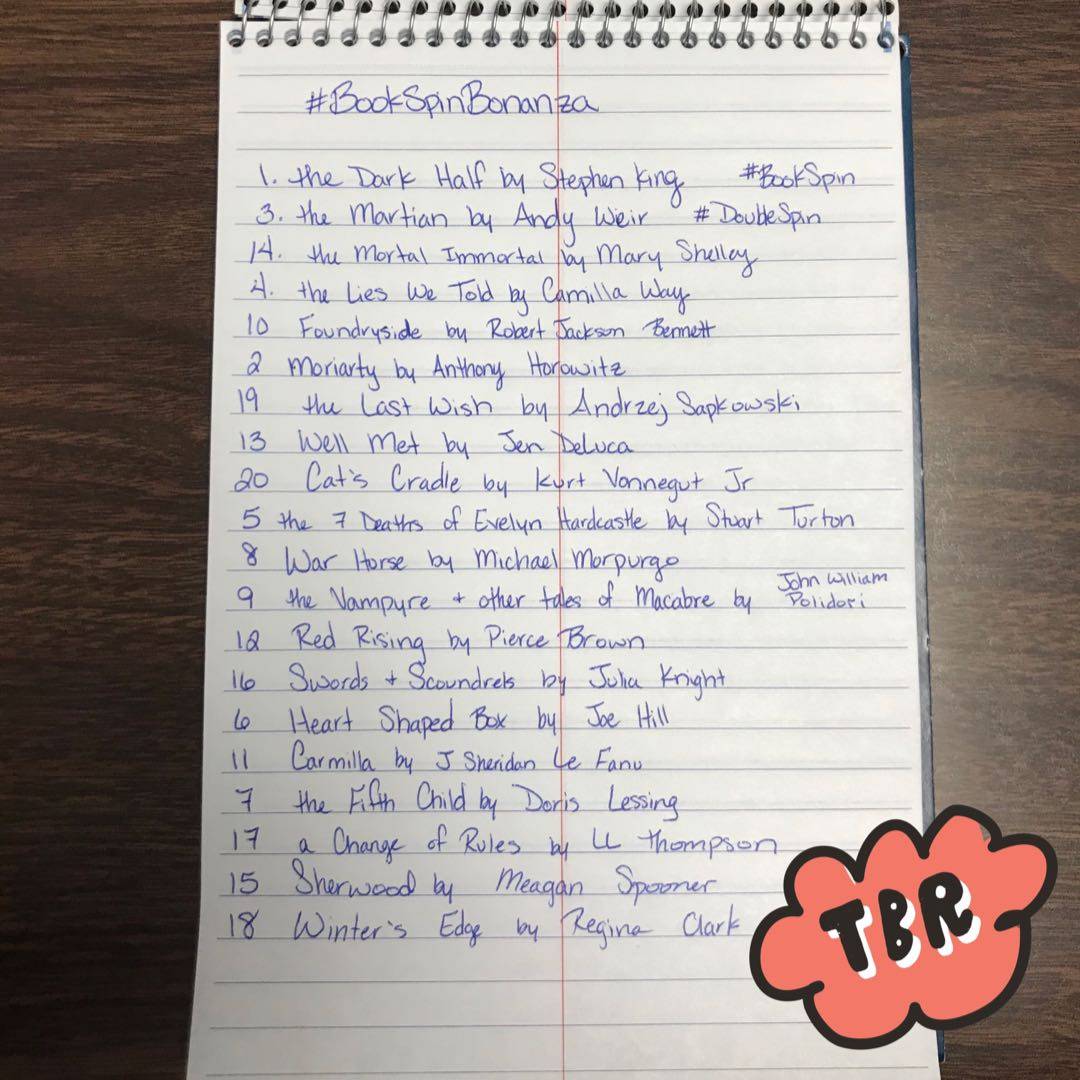 #BookSpinBonanza
1. the Dark Half by Stephen King #BookSpin
3. the Martian by Andy Weir #DoubleSpin
14. the Mortal Immortal by Mary Shelley
4. the Lies We Told by Camilla Way
10 Foundryside by Robert Jackson Bennett
2 Moriarty by Anthony Horowitz
19 the Last Wish by Andrzej Sapkowski
13 Well Met by Jen DeLuca
20 Cat's Cradle by Kurt Vonnegut Jr
5 the 7 Deaths of Evelyn Hardcastle by Stuart Turton
8 War Horse by Michael Morpurgo
9 the Vampyre + other tales of Macabre by John William Polidori
12 Red Rising by Pierce Brown
16 Swords + Scoundrels by Julia Knight
6 Heart Shaped Box by Joe Hill
11 Carmilla by J Sheridan Le Fanu
7 the Fifth Child by Doris Lessing
17 a Change of Rules by LL Thompson
15 Sherwood by Meagan Spooner
18 Winter's Edge by Regina Clark
TBR